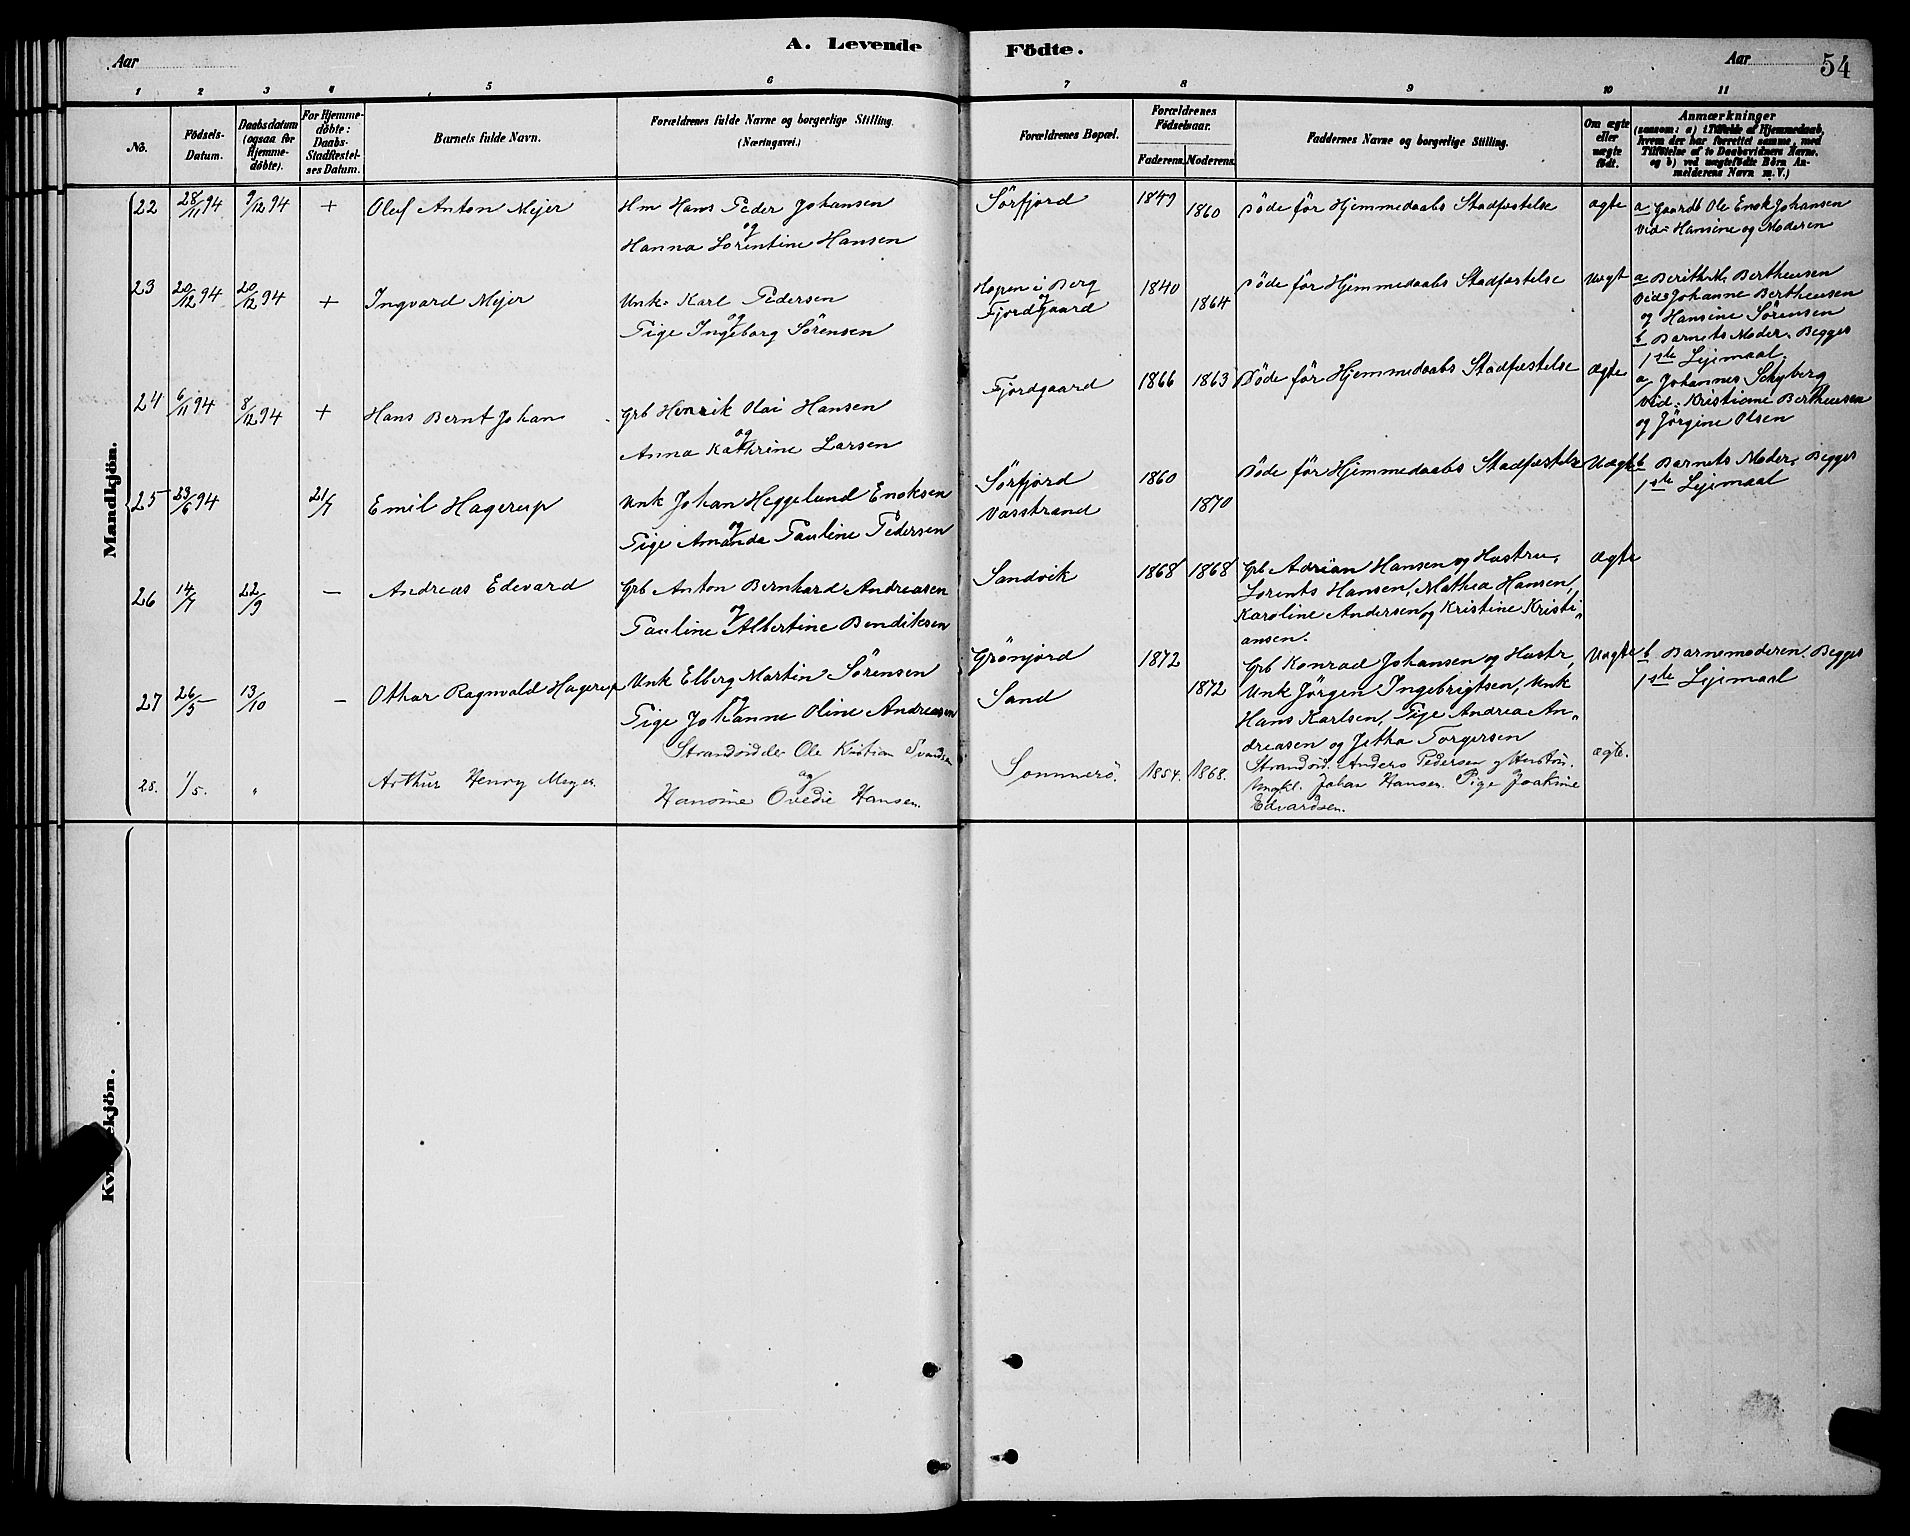 A. Levende Födte.
Aar
Aar
54
1 2 3 4 5 6 7 8 9 10 11
No.
Födsels-Datum.
Daabsdatum (ogsaa for Hjemme-döbte).
For Hjemme-döbte: Daabs-Stadfæstel-ses Datum.
Barnets fulde Navn.
Forældrenes fulde Navne og borgerlige Stilling. (Næringsvei.)
Forældrenes Bopæl.
Forældrenes Födselsaar.
Faderens. Moderens.
Faddernes Navne og borgerlige Stilling.
Om ægte eller uægte födt.
Anmærkninger
(saasom: a) i Tilfælde af Hjemmedaab, hvem der har forrettet samme, med Tilföielse af to Daabsvidners Navne, og b) ved uægtefödte Börn An-melderens Navn m. V.)
Mandkjön.
22 28/11 94 9/12 94 + Olef Anton Mejer Hm Hans Peder Johansen
og
Hanna Lorentine Hansen
Sörfjord 1849 1860 Döde för Hjemmedaabs Stadfæstelse ægte a Gaardb Ole Enok Johansen
Vid= Hansine og Moderen
23 20/12 94 20/12 94 + Ingvard Mejer Unk= Karl Pedersen
og
Pige Ingeborg Sörensen
Hopen i Berg
og
Fjordgaard
1840 1864 Döde för Hjemmedaabs Stadfæstelse Uægt a Berith M. Bertheusen
Vid= Johanne Bertheusen
og Hansine Sörensen
b Barnets Moder. Begges
1ste Lejemaal.
24 6/11 94 8/12 94 + Hans Bernt Johan Grb Henrik Olai Hansen
og
Anna Kathrine Larsen
Fjordgaard 1866 1863 Döde för Hjemmedaabs Stadfæstelse ægte a Johannes Schyberg
Vid= Kristiane Bertheusen
og Jörgine Olsen
25 23/6 94 21/7 Emil Hagerup Unk Johan Heggelund Enoksen
og
Pige Amanda Pauline Pedersen
Sörfjord
Vasstrand
1860 1870 Döde för Hjemmedaabs Stadfæstelse Uægte b Barnets Moder. Begges
1ste Lejemaal
26 14/7 22/9 — Andreas Edevard Grb Anton Bernhard Andreasen
og
Pauline Albertine Bendiksen
Sandvik 1868 1868 Grb Adrian Hansen og Hustru,
Lorents Hansen, Mathea Hansen,
Karoline Andersen og Kristine Kristi„
ansen.
ægte
27 26/5 13/10 — Othar Ragnvald Hagerup Unk Elberg Martin Sörensen
og
Pige Johanne Oline Andreasen
Grönjord
Sand
1872 1872 Grb Konrad Johansen og Hustr,
Unk Jörgen Ingebrigtsen, Unk
Hans Karlsen, Pige Andrea An„
dreasen og Jetha Torgersen
Uægte b Barnemoderen. Begges
1ste Lejemaal
28. 1/5. " Arthur Henry Meyer. Strandsidder Ole Kristian Svendsen
og
Hansine Ovedie Hansen.
Sommerö. 1854. 1868. Strandsid. Anders Pedersen og Hustru.
Ungkl. Johan Hansen. Pige Joakime
Edvardsen.
ægte.